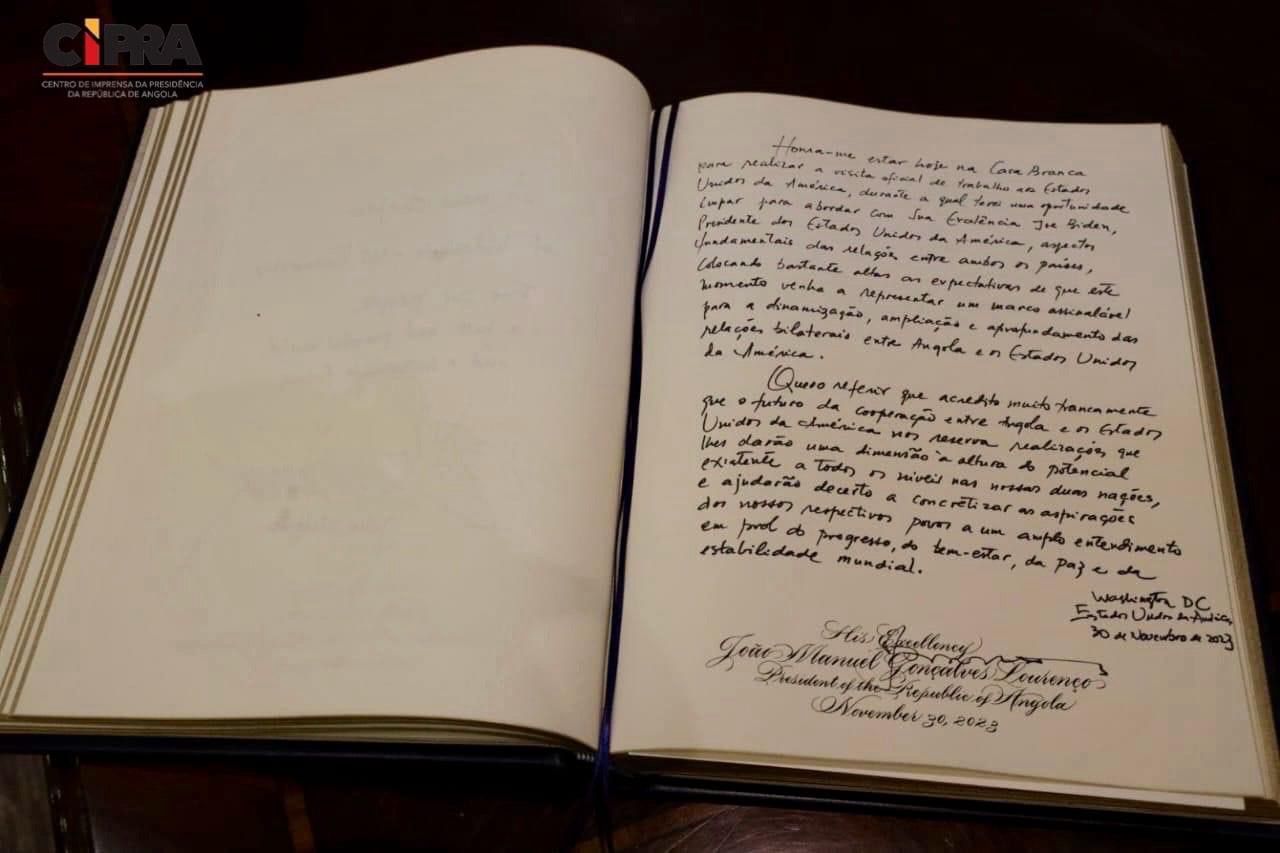 CIPRA
CENTRO DE IMPRENSA DA PRESIDÊNCIA
DA REPÚBLICA DE ANGOLA
Honra-me estar hoje na Casa Branca
para realizar a visita oficial de trabalho aos Estados
Unidos da América, durante a qual terei uma oportunidade
ímpar para abordar com Sua Excelência Joe Biden,
Presidente dos Estados Unidos da América, aspectos
fundamentais das relações entre ambos os países,
colocando bastante altas as expectativas de que este
momento venha a representar um marco assinalável
para a dinamização, ampliação e aprofundamento das
relações bilaterais entre Angola e os Estados Unidos
da América.
Quero referir que acredito muito francamente
que o futuro da cooperação entre Angola e os Estados
Unidos da América nos reserva realizações que
lhes darão uma dimensão à altura do potencial
existente a todos os níveis nas nossas duas nações,
e ajudarão decerto a concretizar as aspirações
dos nossos respectivos povos a um amplo entendimento
em prol do progresso, do bem-estar, da paz e da
estabilidade mundial.
Washington DC
Estados Unidos da América,
30 de Novembro de 2023
His Excellency
João Manuel Gonçalves Lourenço
President of the Republic of Angola
November 30, 2023